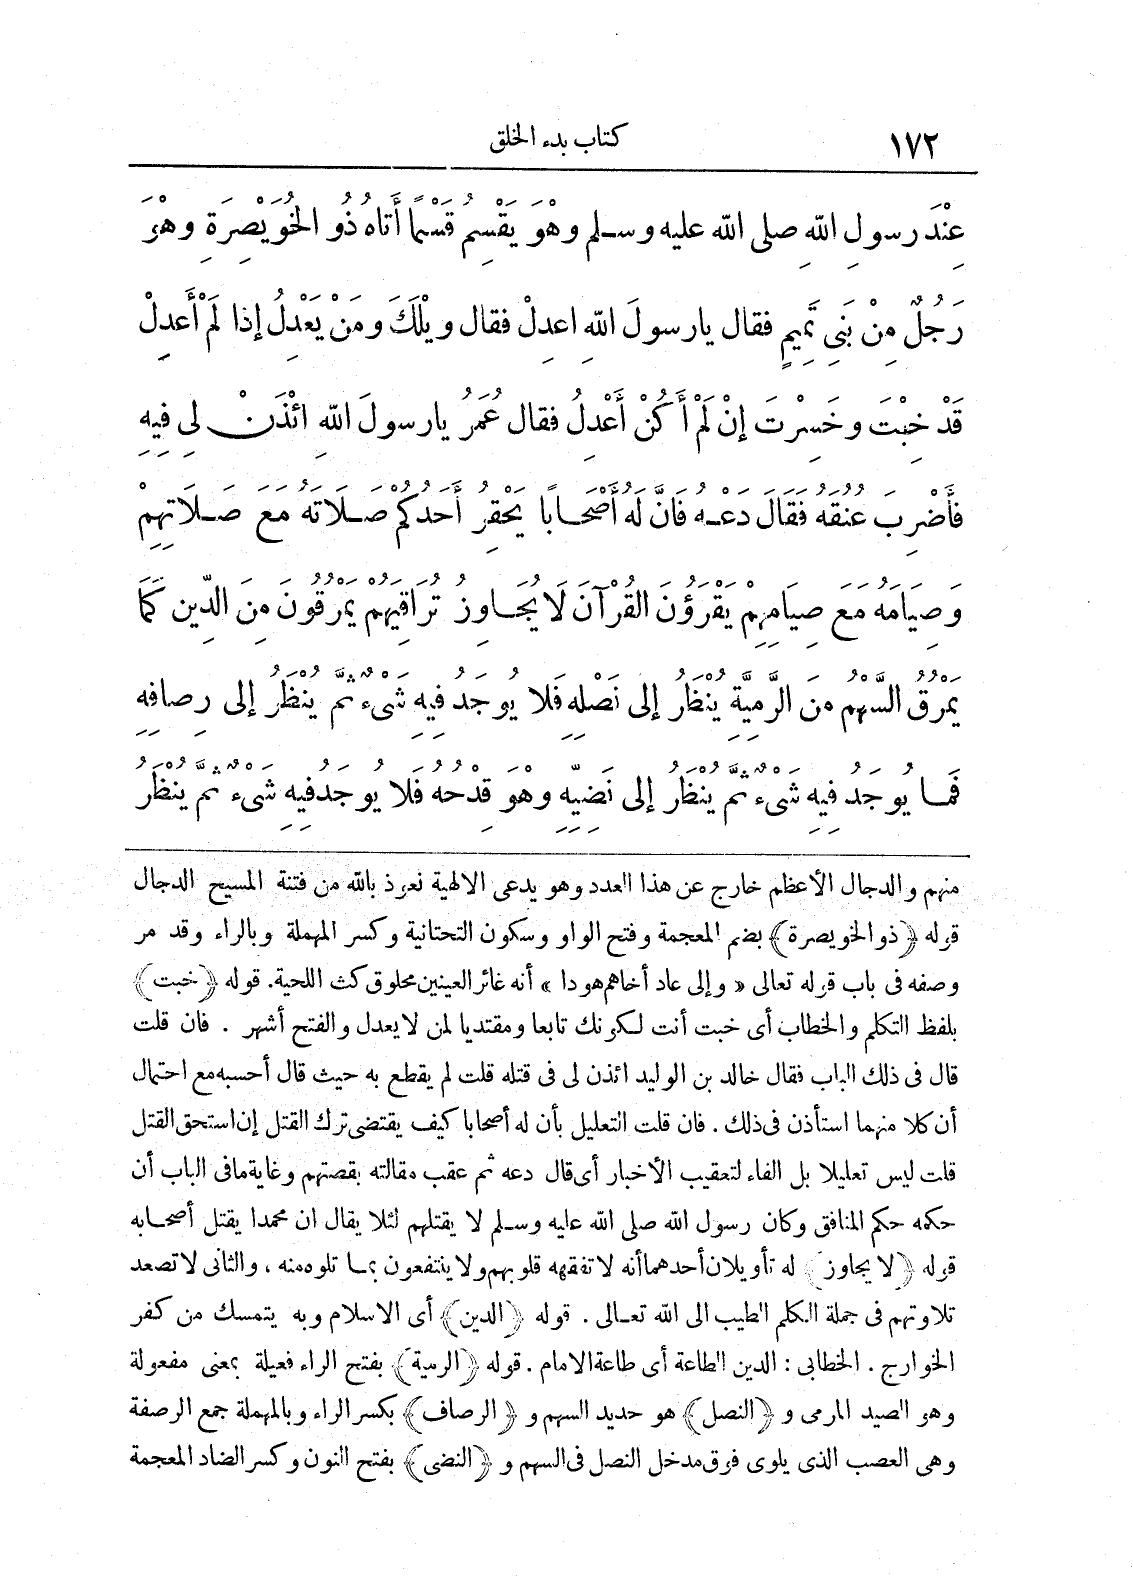 ١٧٢
كتاب بدء الخلق
عِنْدَ رسولِ اللهِ صلى الله عليه وسلم وهْوَ يَقْسِمُ قَسْمًا أَتاهُ ذُو الخُوَيْصِرَةِ وهْوَ
رَجُلٌ مِنْ بَنِى تَمِيمٍ فقال يارسولَ اللهِ اعدِلْ فقال ويْلَكَ ومَنْ يَعْدِلُ إذا لَمْ أَعدِلْ
قَدْ خِبْتَ وخَسِرْتَ إنْ لَمْ أَكُنْ أَعْدِلُ فقال عُمَرُ يارسولَ اللهِ ائْذَنْ لِى فِيهِ
فأَضْرِبَ عُنُقَهُ فَقَالَ دَعْهُ فَانَّ لَهُ أَصْحَابًا يَحْقِرُ أَحَدُكُمْ صَلاَتَهُ مَعَ صَلاَتِهِمْ
وَصِيَامَهُ مَعَ صِيَامِهِمْ يَقْرَؤُنَ القُرْآنَ لَا يُجَاوِزُ تَرَاقِيَهُمْ يَمْرُقُونَ مِنَ الدِّينِ كَمَا
يَمْرُقُ السَّهْمُ مِنَ الرَّمِيَّةِ يُنْظَرُ إلى نَصْلِهِ فَلا يُوجَدُ فِيهِ شَىْءٌ ثُمَّ يُنْظَرُ إلى رِصافِهِ
فَمَا يُوجَدُ فِيهِ شَىْءٌ ثُمَّ يُنْظَرُ إلى نَضِيِّهِ وهْوَ قِدْحُهُ فَلا يُوجَدُ فِيهِ شَىْءٌ ثُمَّ يُنْظَرُ
منهم والدجال الأعظم خارج عن هذا العدد وهو يدعى الالهية نعوذ بالله من فتنة المسيح الدجال
قوله ﴿ذو الخويصرة﴾ بضم المعجمة وفتح الواو وسكون التحتانية وكسر المهملة وبالراء وقد مر
وصفه فى باب قوله تعالى « وإلى عاد أخاهم هودا » أنه غائر العينين محلوق كث اللحية. قوله ﴿خبت﴾
بلفظ التكلم والخطاب أى خبت أنت لكونك تابعا ومقتديا لمن لا يعدل والفتح أشهر . فان قلت
قال فى ذلك الباب فقال خالد بن الوليد ائذن لى فى قتله قلت لم يقطع به حيث قال أحسبه مع احتمال
أن كلا منهما استأذن فى ذلك . فان قلت التعليل بأن له أصحابا كيف يقتضى ترك القتل إن استحق القتل
قلت ليس تعليلا بل الفاء لتعقيب الأخبار أى قال دعه ثم عقب مقالته بقصتهم وغاية مافى الباب أن
حكمه حكم المنافق وكان رسول الله صلى الله عليه وسلم لا يقتلهم لئلا يقال ان محمدا يقتل أصحابه
قوله ﴿لا يجاوز﴾ له تأويلان أحدهما أنه لا تفقهه قلوبهم ولا ينتفعون بما تلوه منه ، والثانى لا تصعد
تلاوتهم فى جملة الكلم الطيب الى الله تعالى . قوله ﴿الدين﴾ أى الاسلام وبه يتمسك من كفر
الخوارج . الخطابى : الدين الطاعة أى طاعة الامام . قوله ﴿الرمية﴾ بفتح الراء فعيلة بمعنى مفعولة
وهو الصيد المرمى و ﴿النصل﴾ هو حديد السهم و ﴿الرصاف﴾ بكسر الراء وبالمهملة جمع الرصفة
وهى العصب الذى يلوى فوق مدخل النصل فى السهم و ﴿النضى﴾ بفتح النون وكسر الضاد المعجمة